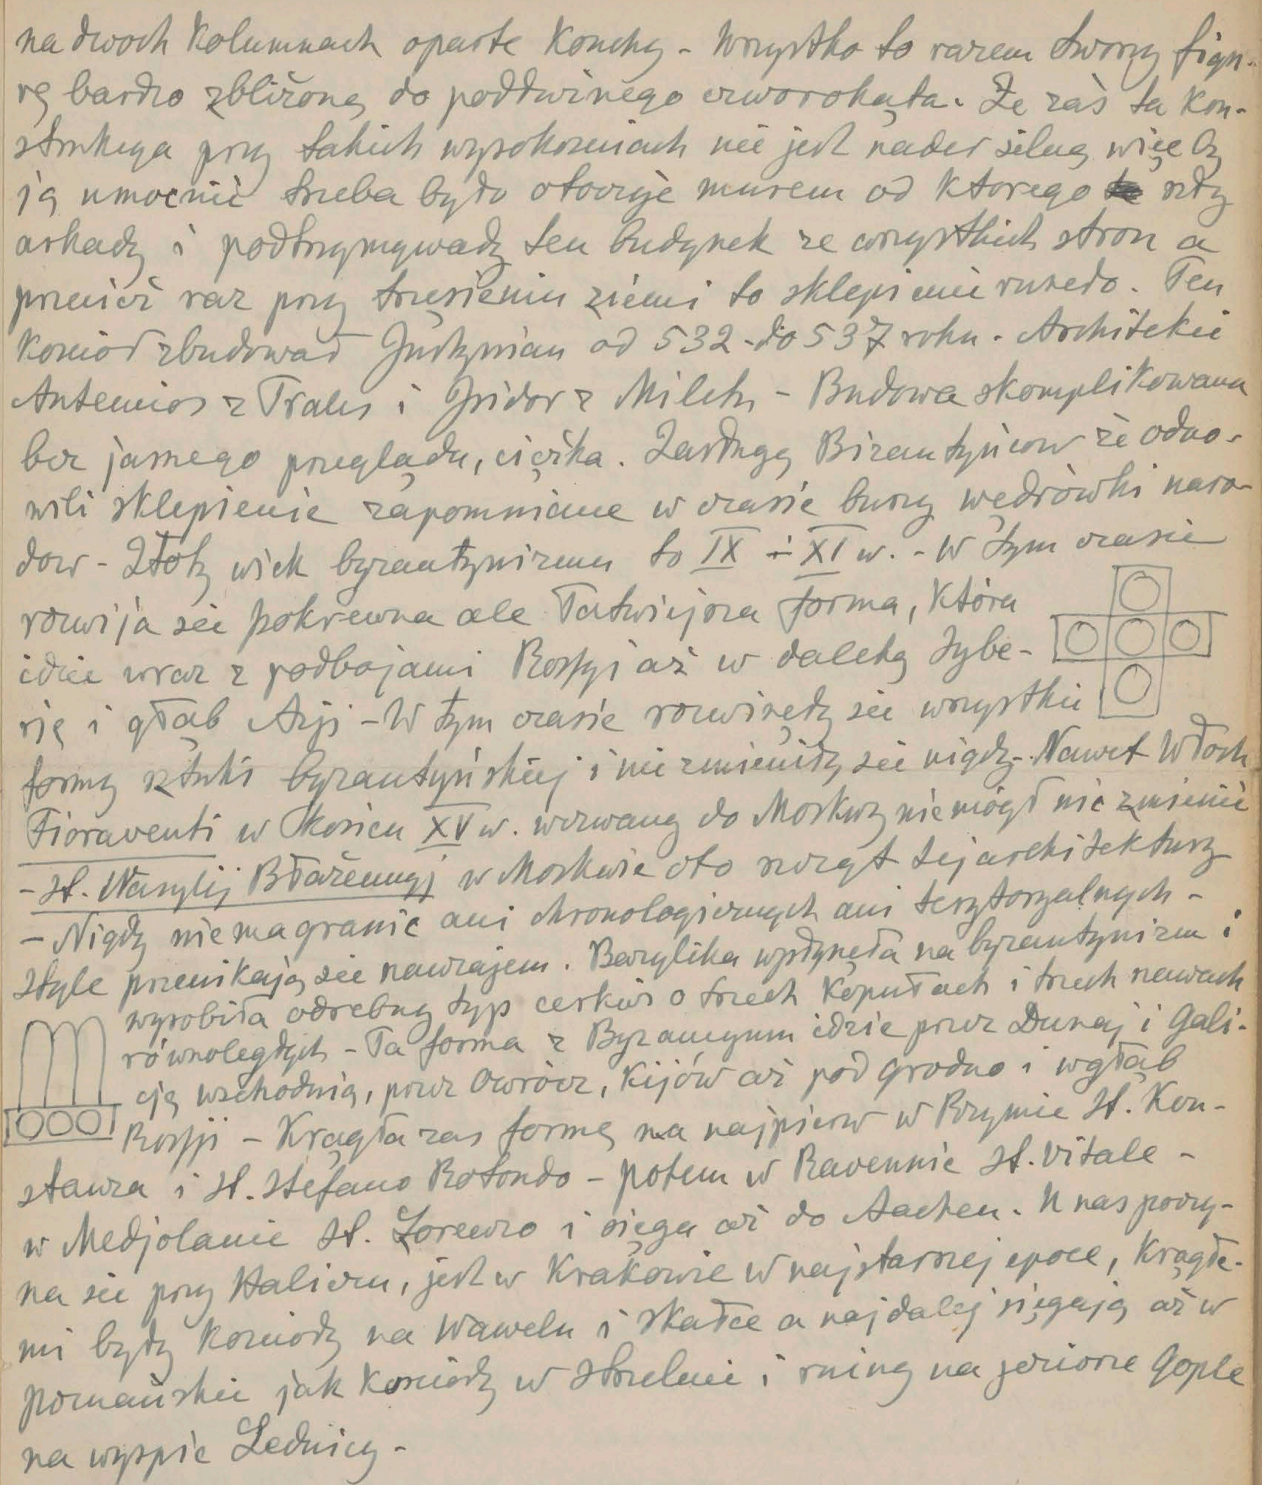 na dwóch kolumnach oparte konchy - wszystko to razem tworzy figu-
rę bardzo zbliżoną do podłużnego czworokąta. Że zaś ta kon-
strukcya przy takich wysokościach nie jest nader silną więc by
ją umocnić trzeba było otoczyć murem od którego szły
arkady i podtrzymywały ten budynek ze wszystkich stron a
przecież raz przy trzęsieniu ziemi to sklepienie runęło. Ten
kościół zbudował Justynian od 532 - do 537 roku. Architekci
Antemios z Trales i Isidor z Miletu - Budowa skomplikowana
bez jasnego przeglądu, ciężka. Zasługą Bizantyńców że odno-
wili sklepienie zapomniane w czasie burzy wędrówki naro-
dów - Złoty wiek byzantynizmu to IX i XI w. - W tym czasie
rozwija się pokrewna ale łatwiejsza forma, która
idzie wraz z podbojami Rossyi aż w daleką Sybe-
rię i głąb Azji - W tym czasie rozwinęły się wszystkie
formy sztuki byzantyńskiej i nie zmieniły się nigdy. - Nawet Włoch
Fioraventi w końcu XV w. wezwany do Moskwy nie mógł nic zmienić
- St. Wasylij Błażennyj w Moskwie oto szczyt tej architektury
- Nigdy nie ma granic ani chronologicznych ani terytoryalnych -
style przenikają się nawzajem. Bazylika wpłynęła na byzantynizm i
wyrobiła odrębny typ cerkwi o trzech kopułach i trzech nawach
równoległych - Ta forma z Byzancyum idzie przez Dunaj i Gali-
cję wschodnią, przez Owrócz, Kijów aż pod Grodno i wgłąb
Rossji - Krągła zaś formę ma najpierw w Rzymie St. Kon-
stanza i St. Stefano Rotondo - potem w Ravennie St. Vitale -
w Medjolanie St. Lorenzo i sięga aż do Aachen. U nas poczy-
na się przy Haliczu, jest w Krakowie w najstarszej epoce, krągłe-
mi były kościoły na Wawelu i Skałce a najdalej sięgają aż w
poznańskie jak kościoły w Strzelnie i ruiny na jeziorze Gople
na wyspie Lednicy -